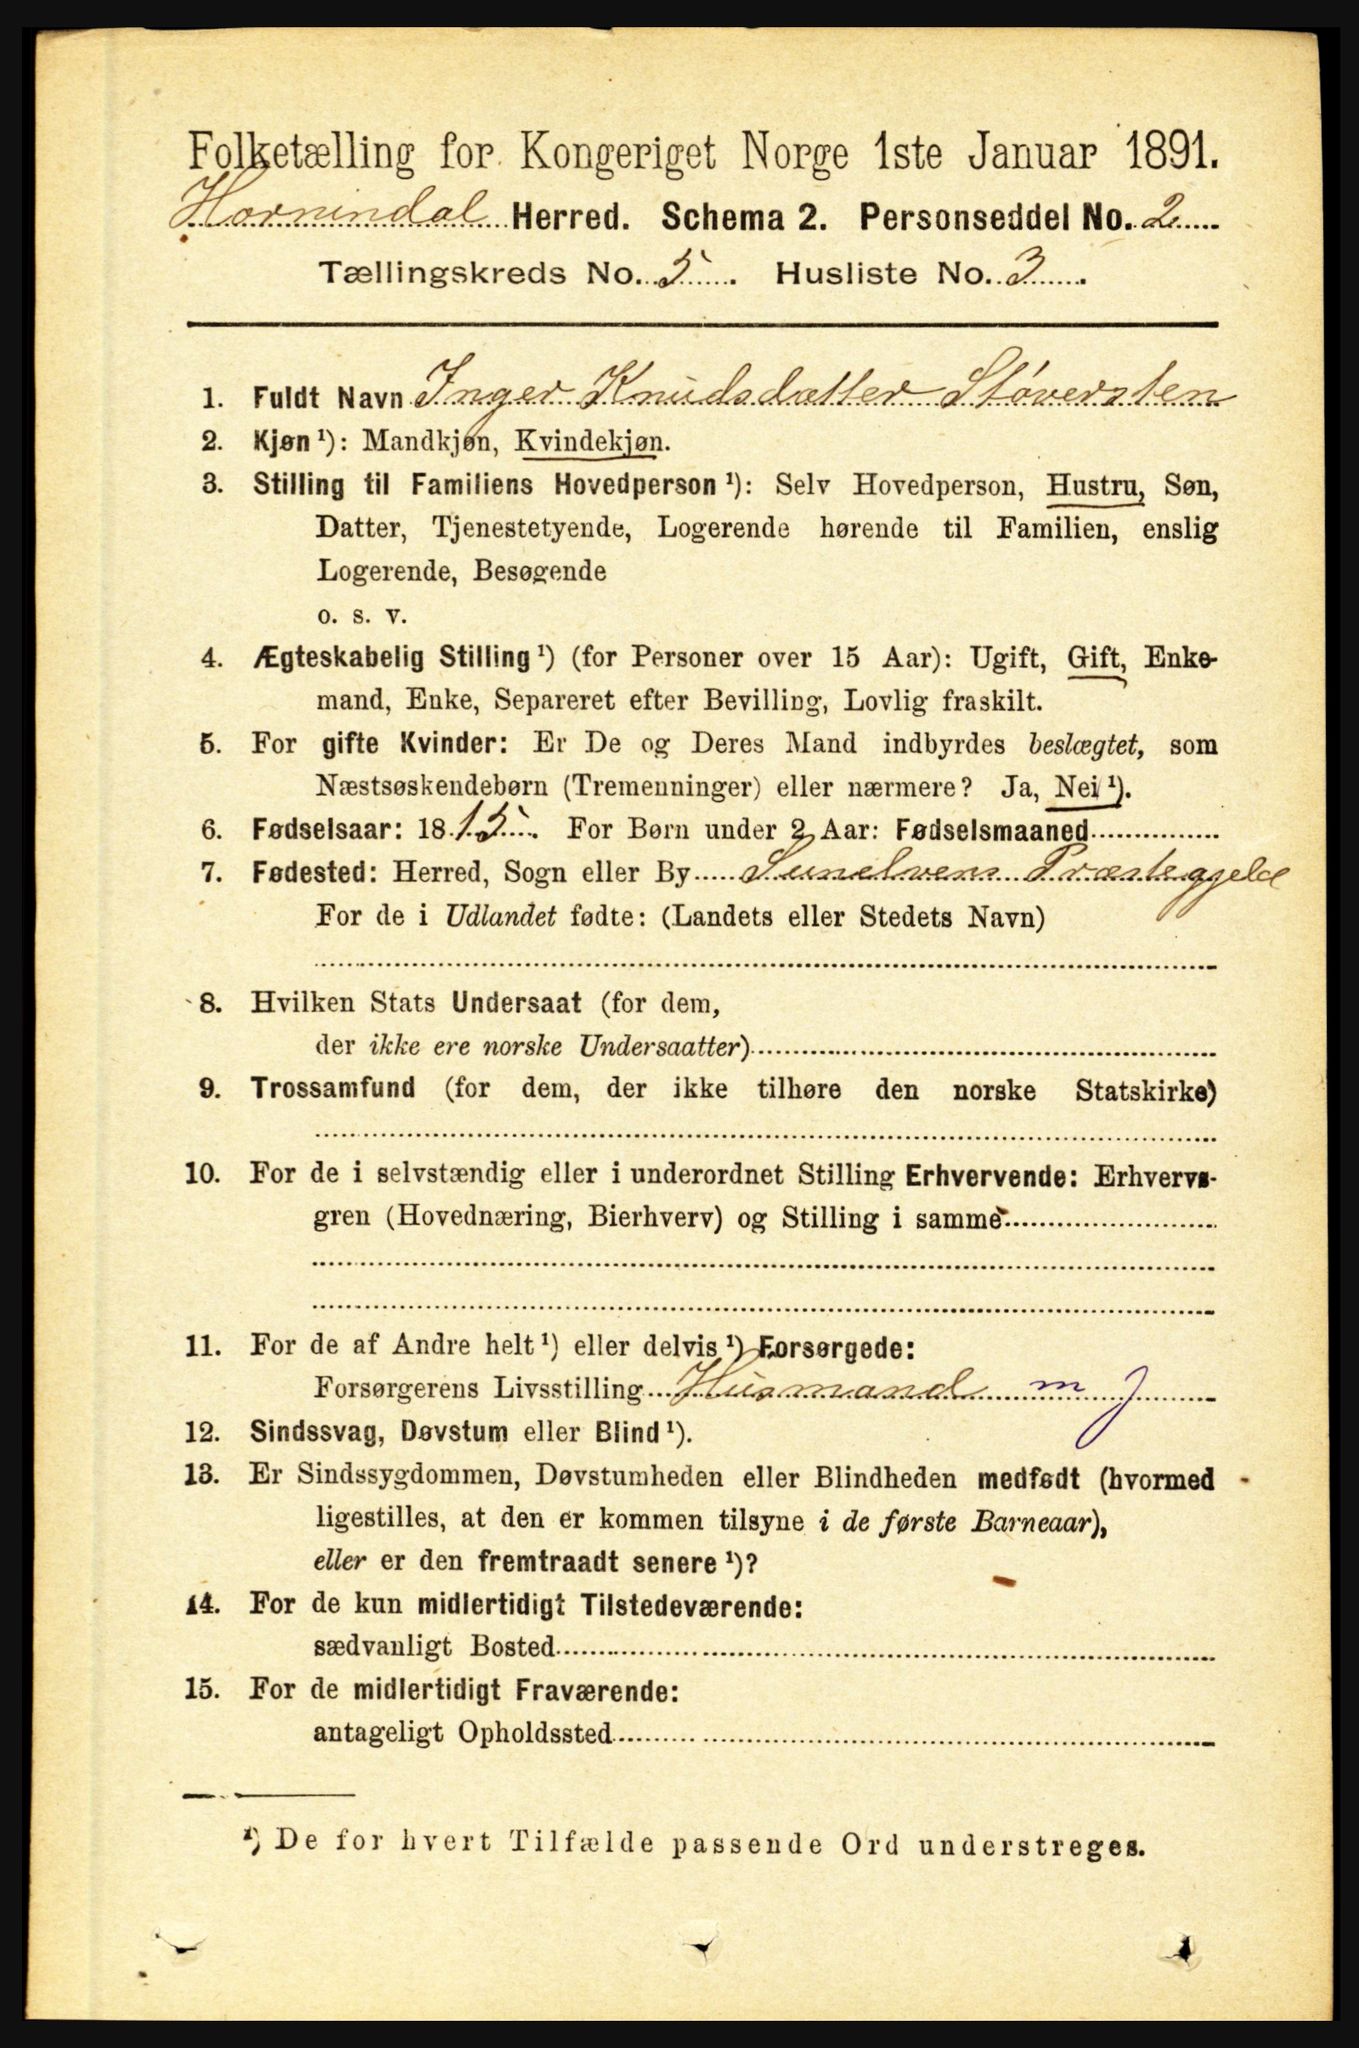 Folketælling for Kongeriget Norge 1ste Januar 1891.
Hornindal Herred. Schema 2. Personseddel No. 2
Tællingskreds No. 5. Husliste No. 3.
1. Fuldt Navn Inger Knudsdatter Støversten
2. Kjøn ¹): Mandkjøn, Kvindekjøn.
3. Stilling til Familiens Hovedperson ¹): Selv Hovedperson, Hustru, Søn,
Datter, Tjenestetyende, Logerende hørende til Familien, enslig
Logerende, Besøgende
o. s. v.
4. Ægteskabelig Stilling ¹) (for Personer over 15 Aar): Ugift, Gift, Enke-
mand, Enke, Separeret efter Bevilling, Lovlig fraskilt.
5. For gifte Kvinder: Er De og Deres Mand indbyrdes beslægtet, som
Næstsøskendebørn (Tremenninger) eller nærmere? Ja, Nei ¹).
6. Fødselsaar: 1815. For Børn under 2 Aar: Fødselsmaaned
7. Fødested: Herred, Sogn eller By Sunelvens Præstegjeld
For de i Udlandet fødte: (Landets eller Stedets Navn)
8. Hvilken Stats Undersaat (for dem,
der ikke ere norske Undersaatter)
9. Trossamfund (for dem, der ikke tilhøre den norske Statskirke)
10. For de i selvstændig eller i underordnet Stilling Erhvervende: Erhvervs-
gren (Hovednæring, Bierhverv) og Stilling i samme
11. For de af Andre helt ¹) eller delvis ¹) Forsørgede:
Forsørgerens Livsstilling Husmand m j
12. Sindssvag, Døvstum eller Blind ¹).
13. Er Sindssygdommen, Døvstumheden eller Blindheden medfødt (hvormed
ligestilles, at den er kommen tilsyne i de første Barneaar),
eller er den fremtraadt senere ¹)?
14. For de kun midlertidigt Tilstedeværende:
sædvanligt Bosted
15. For de midlertidigt Fraværende:
antageligt Opholdssted
¹) De for hvert Tilfælde passende Ord understreges.